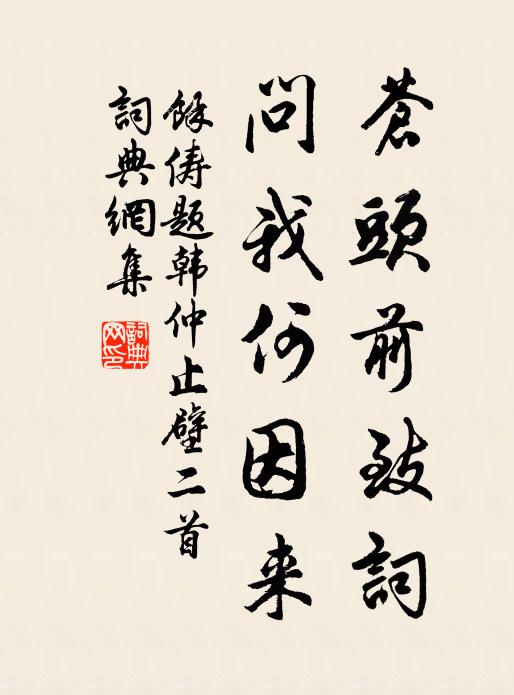 蒼頭前致詞
問我何因来
餘儔題韩仲止壁二首
詞典網集
詞典网印